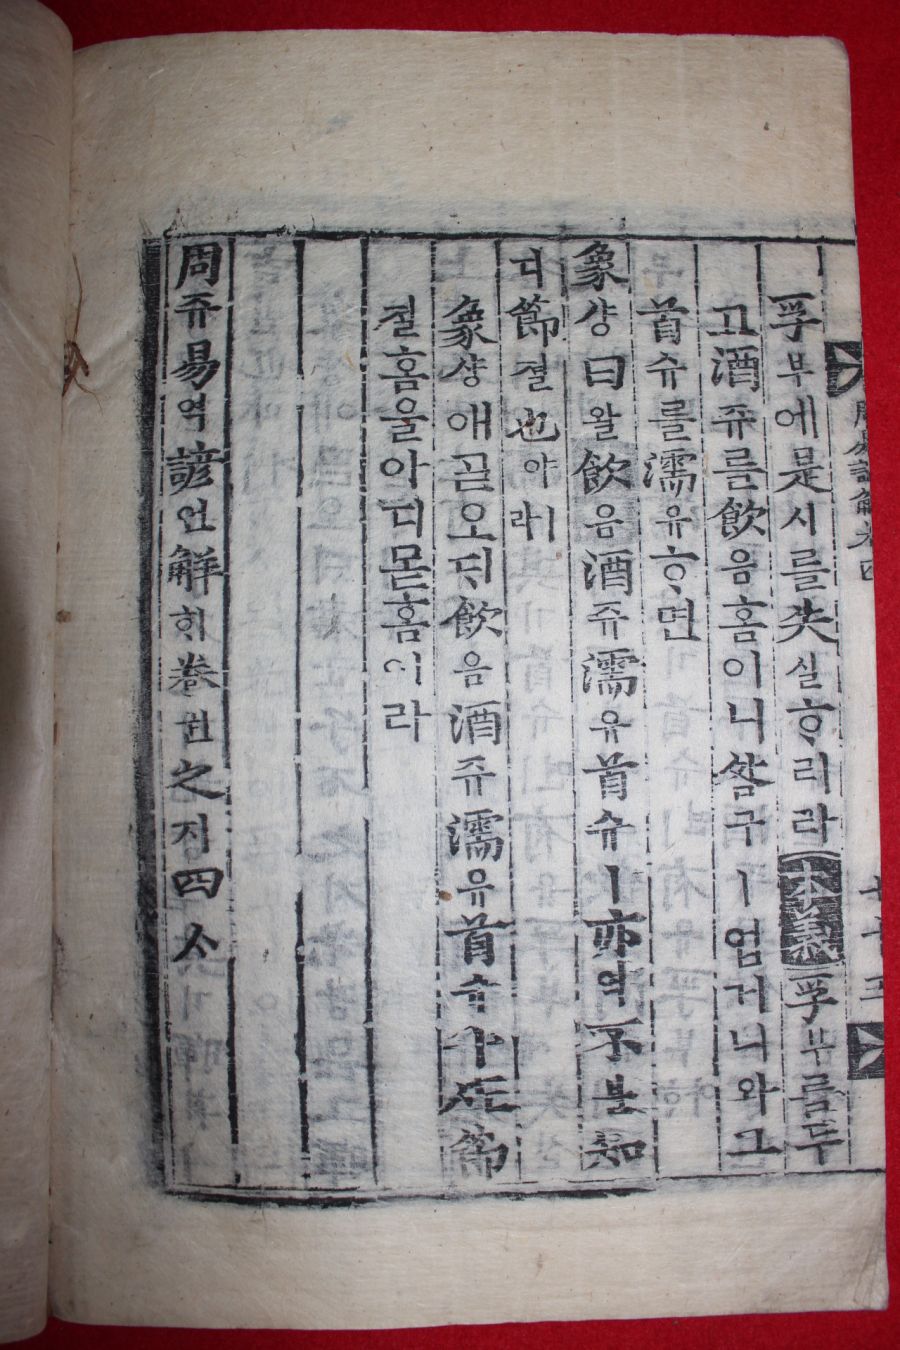 孚부에믿시를失실ᄒᆞ리라本義孚부를두
고酒쥬를飮음홈이니咎구ㅣ업거니와그
首슈를濡유ᄒᆞ면
象샹曰왈飮음酒쥬濡유首슈ㅣ亦역不블知
디節졀也야ㅣ라
象샹애ᄀᆞᆯ오ᄃᆡ飮음酒쥬濡유首슈ㅣ
졀홈을아디몯홈이라
周쥬易역諺언解ᄒᆡ卷권之지四ᄉᆞ
周易諺解卷四